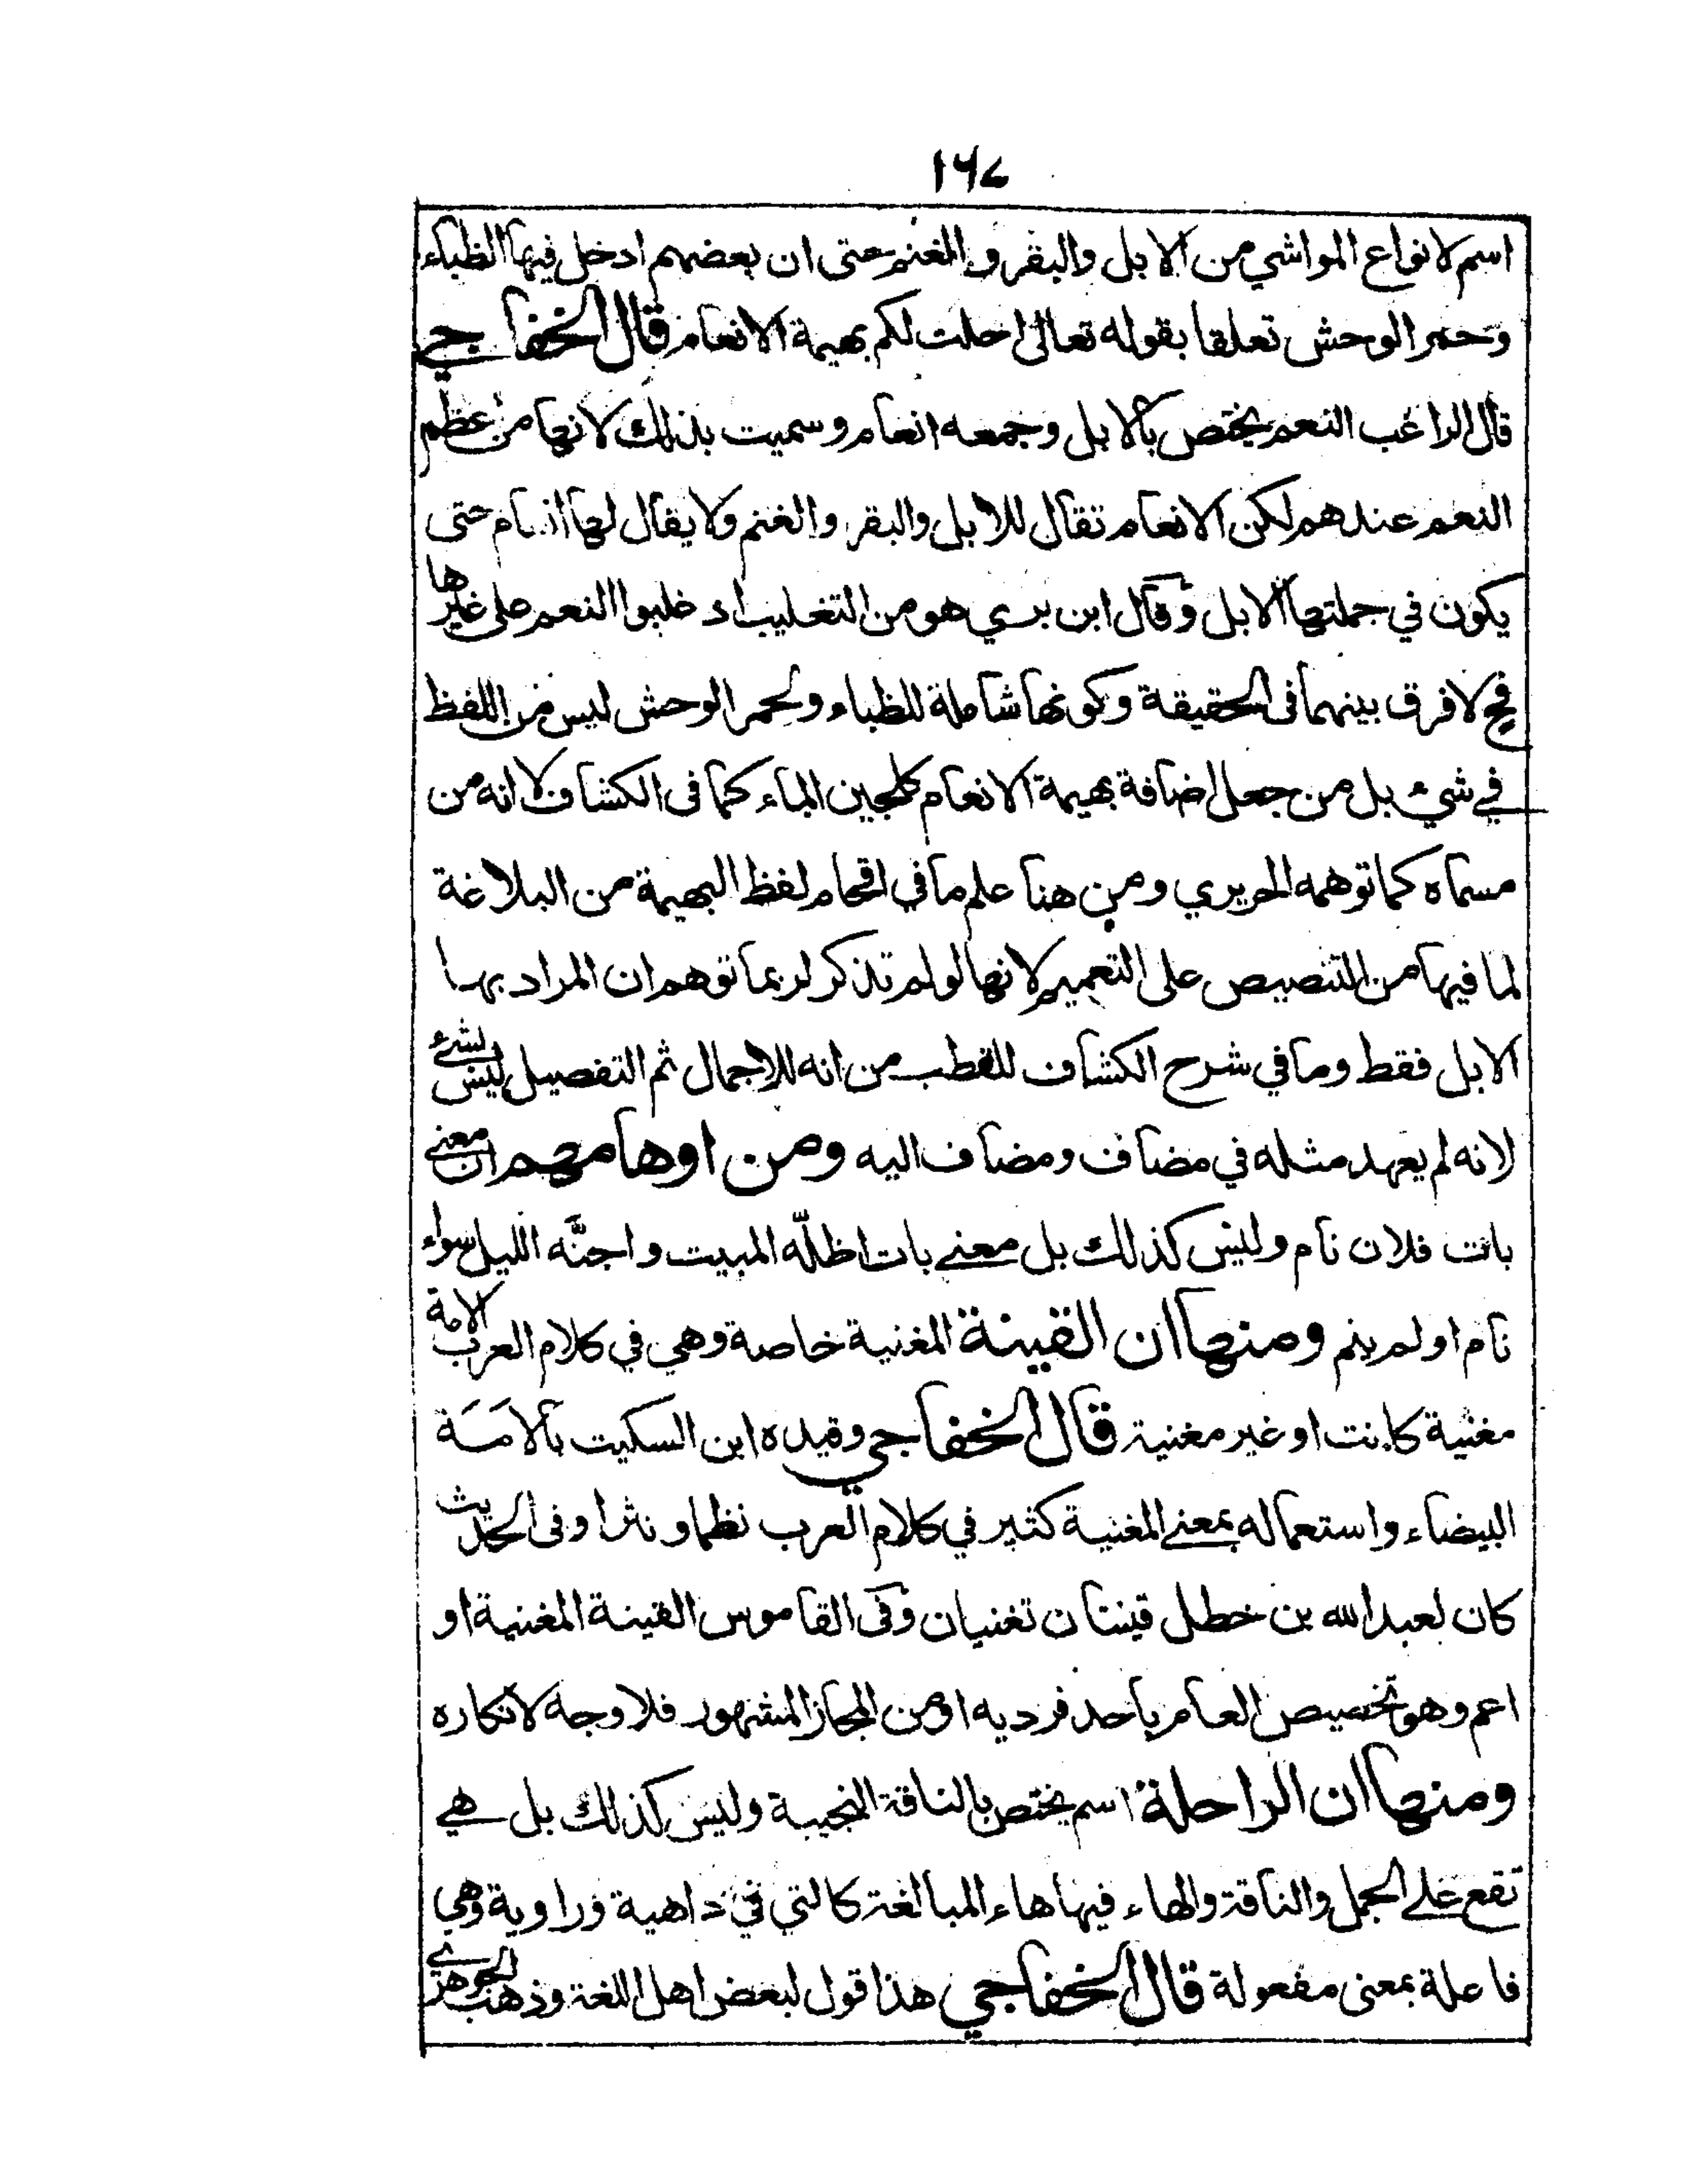 ١٦٧
اسم لانواع المواشي من الابل والبقر والغنم حتى ان بعضهم ادخل فيها الظباء
وحمر الوحش تعلقا بقوله تعالى احلت لكم بهيمة الانعام قال الخفاجي
قال الراغب النعم يختص بالابل وجمعه انعام وسميت بذلك لانها من عظم
النعم عندهم لكن الانعام تقال للابل والبقر والغنم ولا يقال لها انعام حتى
يكون في جملتها الابل وقال ابن بري هو من التغليب اذ غلبوا النعم على غيرها
فح لا فرق بينهما في الحقيقة وكونها شاملة للظباء ولحمر الوحش ليس من اللفظ
في شيء بل من جعل اضافة بهيمة الانعام كلجين الماء كما في الكشاف لا انه من
مسماه كما توهمه الحريري ومن هنا علم ما في اقحام لفظ البهيمة من البلاغة
لما فيها من التنصيص على التعميم لانها لو لم تذكر لربما توهم ان المراد بها
الابل فقط وما في شرح الكشاف للقطب من انه للاجمال ثم التفصيل ليس بشئ
لانه لم يعهد مثله في مضاف ومضاف اليه ومن اوهامهم ان معنے
بات فلان نام وليس كذلك بل معنے بات اظلّه المبيت واجنّه الليل سواء
نام او لم ينم ومنها ان القينة المغنية خاصة وهي في كلام العرب الامة
مغنية كانت او غير مغنية قال الخفاجي وقيده ابن السكيت بالامَة
البيضاء واستعماله بمعنے المغنية كثير في كلام العرب نظما ونثرا وفى الحديث
كان لعبد الله بن خطل قينتان تغنيان وفى القاموس القينة المغنية او
اعم وهو تخصيص العام باحد فرديه او من المجاز المشهور فلا وجه لانكاره
ومنها ان الراحلة اسم يختص بالناقة النجيبة وليس كذلك بل هي
تقع على الجمل والناقة والهاء فيها هاء المبالغة كالتي في داهية وراوية وهي
فاعلة بمعنى مفعولة قال الخفاجي هذا قول لبعض اهل اللغة وذهب الجوهري